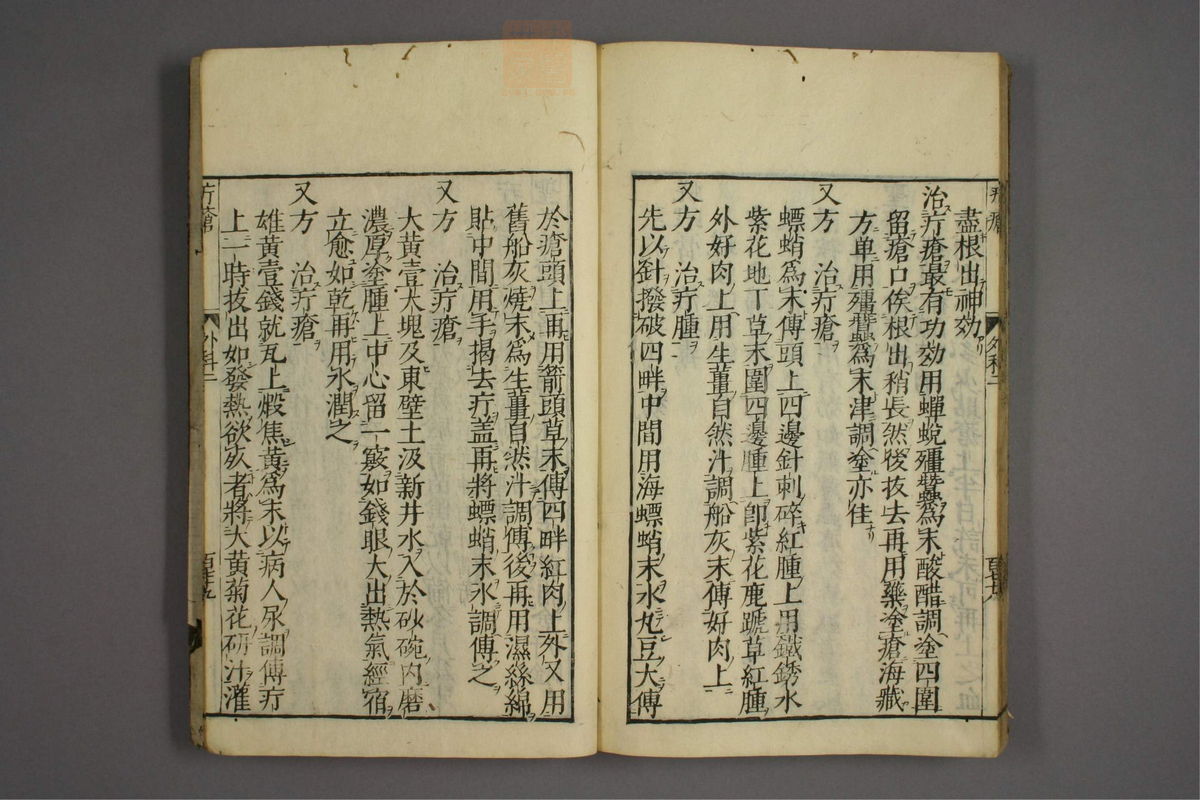 盡根出神効
治疔瘡最有功効用蟬蛻殭蠶爲末酸醋調塗四圍
留瘡口俟根出稍長然後抜去再用藥塗瘡海藏
方单用殭蠶爲末津調塗亦佳
又方　治疔瘡
螵蛸爲末傅頭上四邊針刺碎紅腫上用鐵銹水
紫花地丁草末圍四邊腫上卽紫花鹿蹄草紅腫
外好肉上用生薑自然汁調船灰末傅好肉上
又方　治疔腫
先以針撥破四畔中間用海螵蛸末水丸豆大傅
疔瘡
外科二
於瘡頭上再用箭頭草末傅四畔紅肉上外又用
舊船灰燒末爲生薑自然汁調傅後再用濕絲綿
貼中間用手揭去疔盖再將螵蛸末水調傅之
又方　治疔瘡
大黄壹大塊及東壁土汲新井水入於砂碗内磨
濃厚塗腫上中心留一竅如錢眼大出熱氣經宿
立愈如乾再用水潤之
又方　治疔瘡
雄黄壹錢就瓦上煅焦黄爲末以病人尿調傅疔
上一時抜出如發熱欲㽲者將大黄菊花研汁灌
疔瘡
外科二